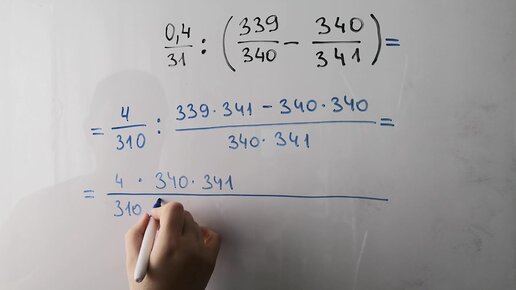 0,4/31 : (339/340 − 340/341) =
= 4/310 : (339·341 − 340·340)/(340·341) =
= (4 · 340·341)/(310